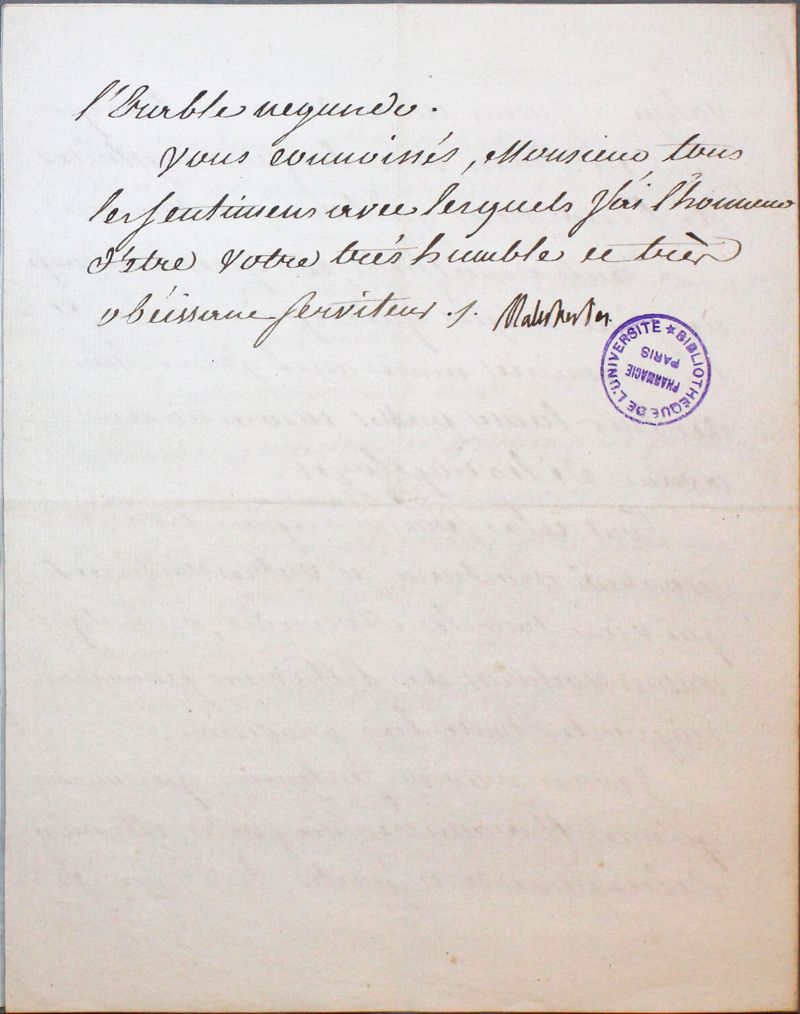 l'Erable negundo.
Vous connoissés, Monsieur tous
les sentimens avec lesquels j'ai l'honneur
d'etre votre trés humble et trèr
obéissant serviteur ./. Malesherbes.
BIBLIOTHÈQUE DE L'UNIVERSITÉ ★
PHARMACIE
PARIS